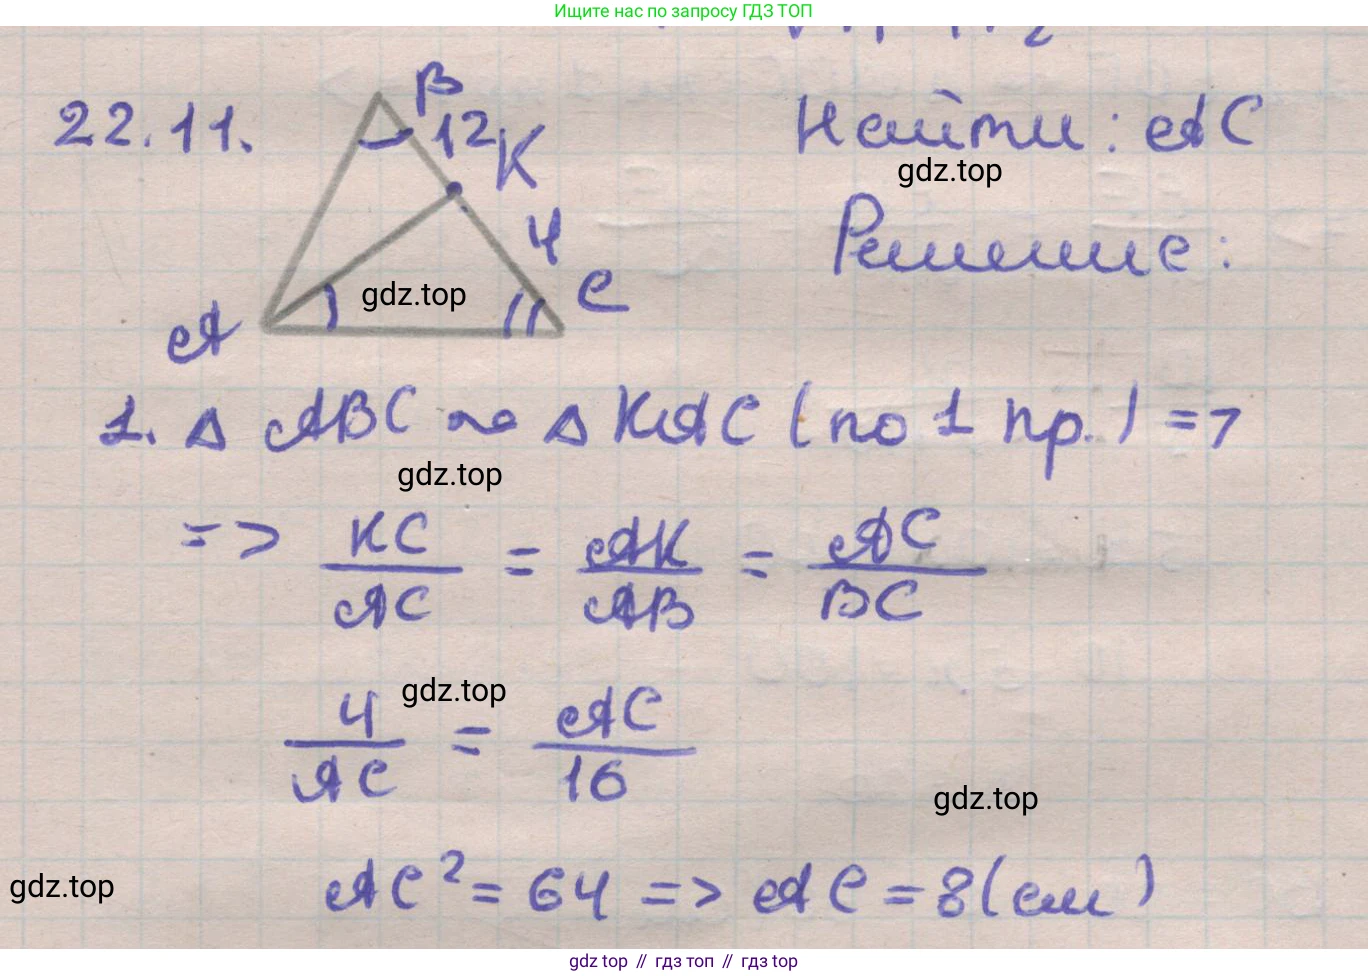 Ищите нас по запросу ГДЗ ТОП
22.11.
B
12
K
4
A
C
Найти: AC
gdz.top
Решение:
gdz.top
1. △ ABC ~ △ KAC (по 1 пр.) =>
gdz.top
=> KC/AC = AK/AB = AC/BC
gdz.top
4/AC = AC/16
gdz.top
gdz.top
AC² = 64 => AC = 8 (см)
gdz top // гдз топ // гдз top